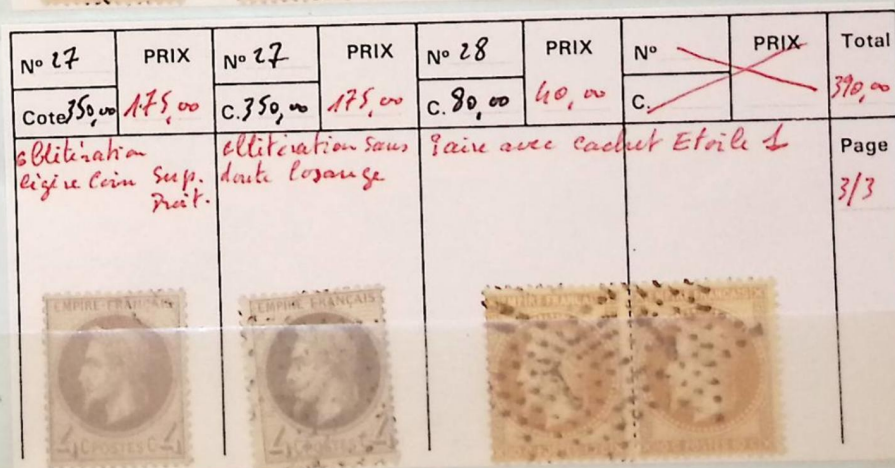 Nº 27 PRIX Nº 27 PRIX Nº 28 PRIX Nº PRIX Total
Cote 350,00 175,00 C. 350,00 175,00 C. 80,00 40,00 C. 390,00
oblitération
légère Coin Sup.
Droit.
oblitération sans
doute losange
Paire avec cachet Etoile 1
Page
3/3
EMPIRE FRANÇAIS
EMPIRE FRANÇAIS
4 C POSTES C 4
4 C POSTES C 4